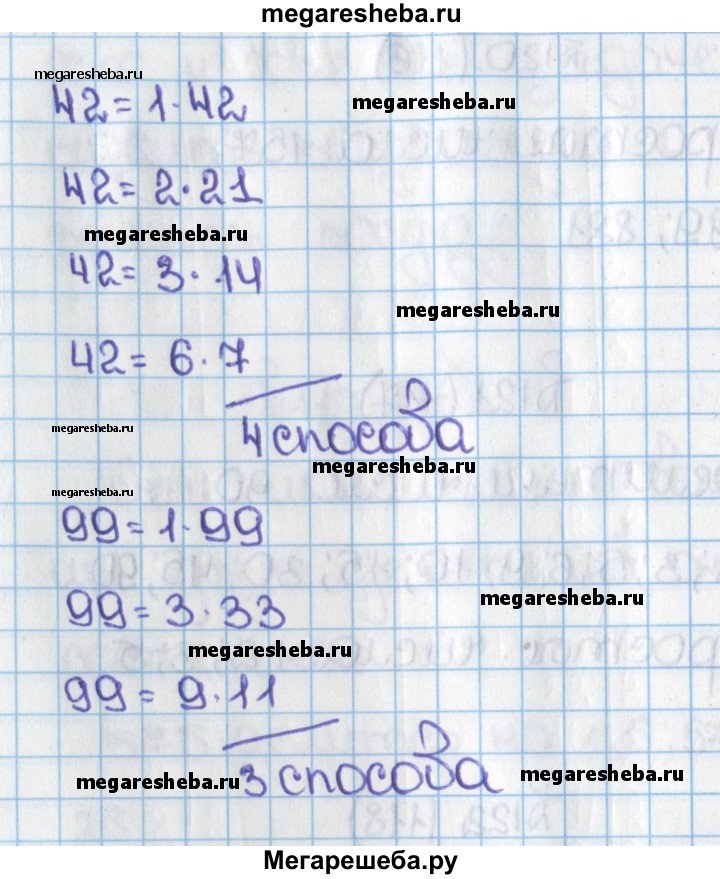 megaresheba.ru
megaresheba.ru
42 = 1 · 42
megaresheba.ru
42 = 2 · 21
megaresheba.ru
42 = 3 · 14
megaresheba.ru
42 = 6 · 7
megaresheba.ru
4 способа
megaresheba.ru
megaresheba.ru
99 = 1 · 99
megaresheba.ru
99 = 3 · 33
megaresheba.ru
99 = 9 · 11
megaresheba.ru 3 способа megaresheba.ru
Мегарешеба.ру